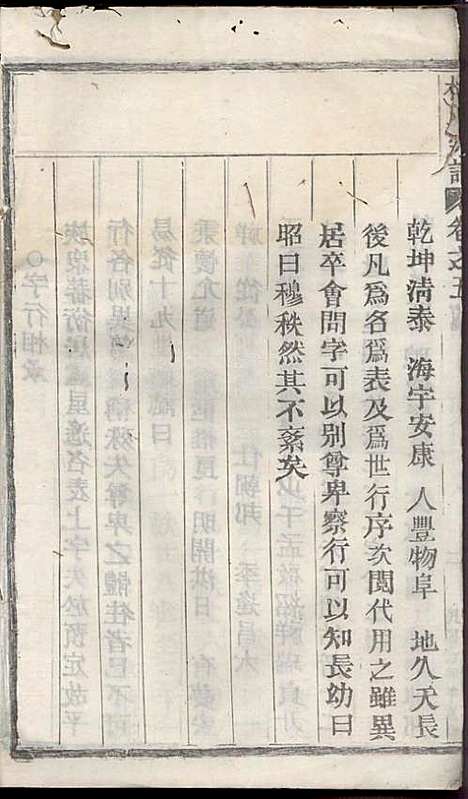 氏宗譜 卷之五
乾坤清泰 海宇安康 人豐物阜 地久天長
後凡爲名爲表及爲世行序次閱代用之雖異
居卒會問字可以別尊卑察行可以知長幼曰
昭曰穆秩然其不紊矣